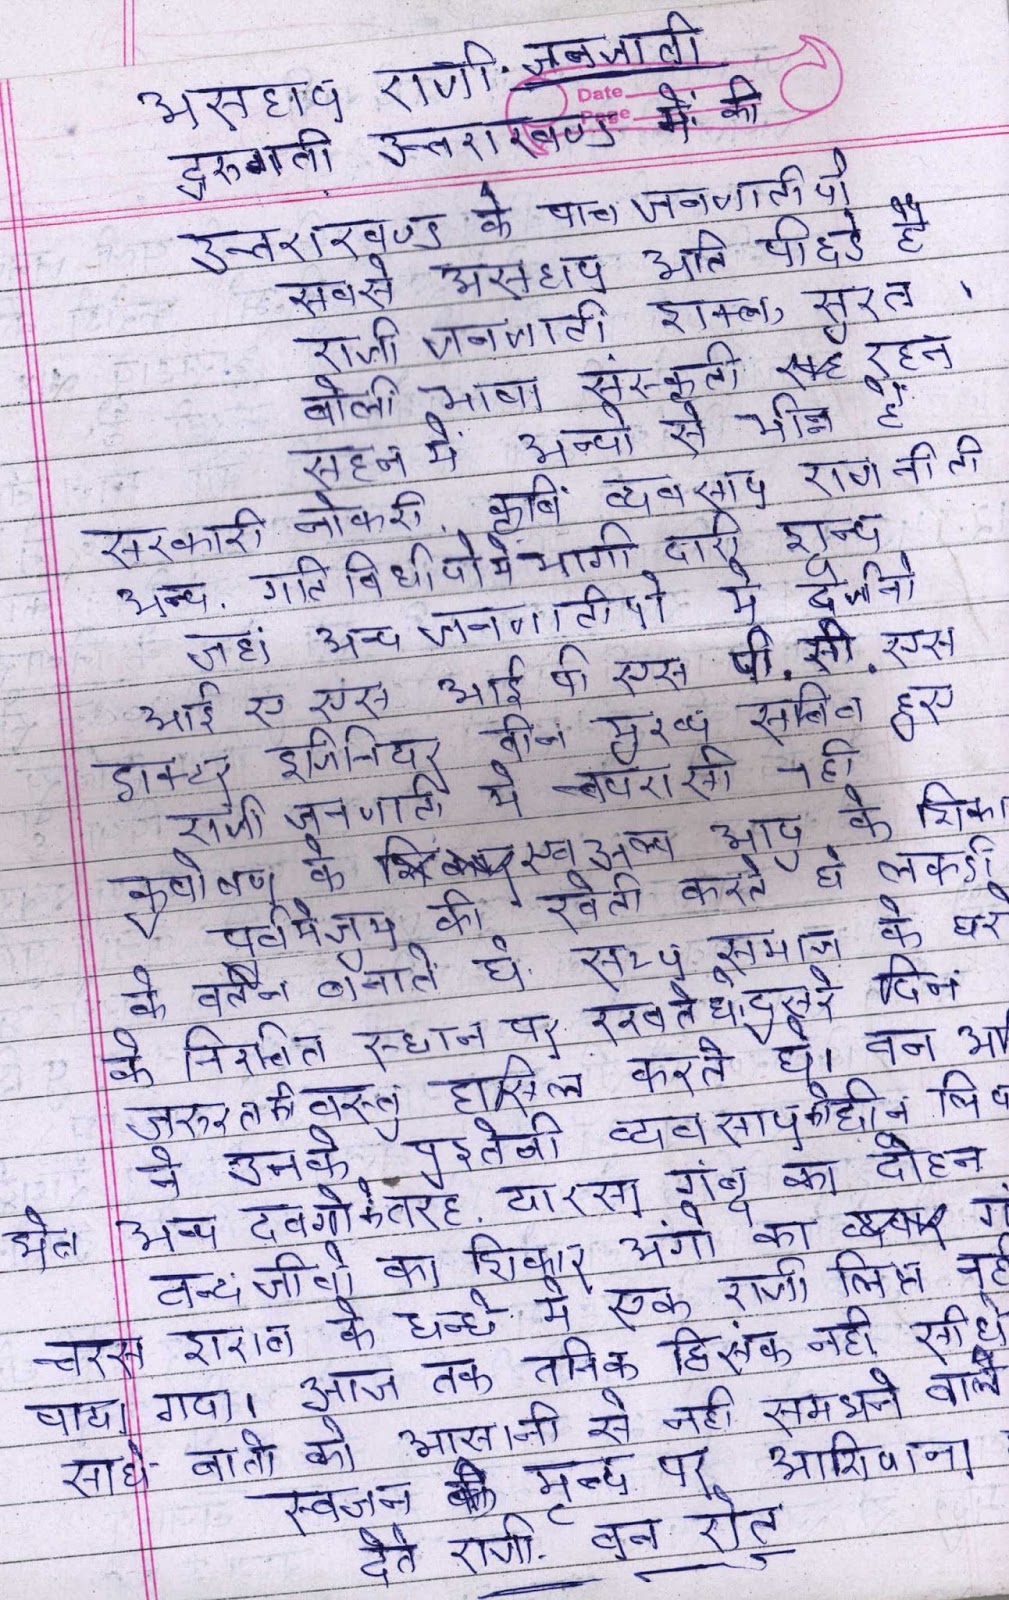 असहाय राजी जनजाती
Date
Page
उत्तराखण्ड में की
उत्तराखण्ड के पाच जनजातीयो
सबसे असहाय अति पीछडे है
राजी जनजाती शक्ल, सुरत
बोली भाषा संस्कृती रहन
सहन में अन्यो से भीन्न है
सरकारी नोकरी, कृषि व्यवसाय राजनीती
अन्य गतिविधीयो में भागी दारी शुन्य
जहां अन्य जनजातीयो मे दर्जनो
आई ए एस आई पी एस पी. सी. एस
डाक्टर इजिनियर तीन मुख्य सचिव हुए
राजी जनजाती मे चपरासी नही
कुपोषण के एव अल्प आयु के शिका
की खेती करते थे लकडी
के बर्तन बनाते थे सभ्य समाज के घरो
के निश्चित स्थान पर रखते थे दुसरे दिन
जरुरत की वस्तु हासिल करते थे। वन
ने उनके पुश्तेनी व्यवसाय को छीन लिय
अन्य दबगो के तरह यारसा गंबू का दोहन
वन्य जीवो का शिकार अंगो का
चरस शराब के धन्धे मे एक राजी लिप्त नही
पाया गया। आज तक तनिक हिसंक नही सीधे
साधे बातो को आसानी से नही समझने वाले
स्वजन की मृत्य पर आशियाना
देते राजी वन रोत